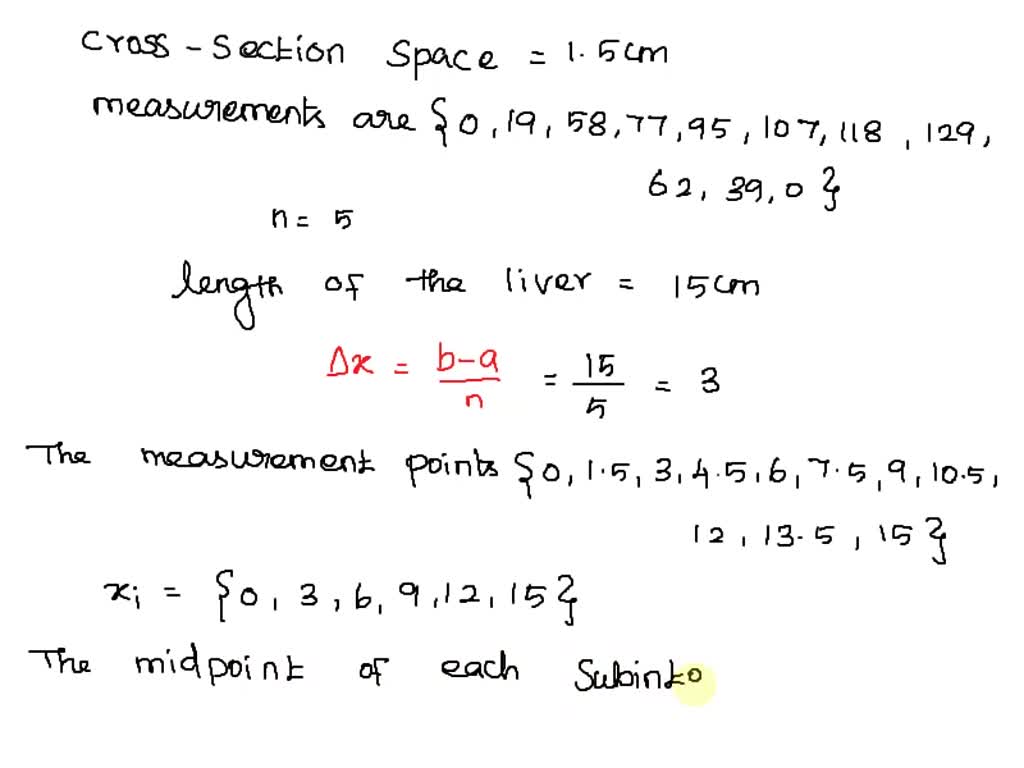 cross-section space = 1.5cm
measurements are {0, 19, 58, 77, 95, 107, 118, 129,
62, 39, 0}
n = 5
length of the liver = 15cm
Δx = b-a/n = 15/5 = 3
The measurement points {0, 1.5, 3, 4.5, 6, 7.5, 9, 10.5,
12, 13.5, 15}
xi = {0, 3, 6, 9, 12, 15}
The midpoint of each Subinto